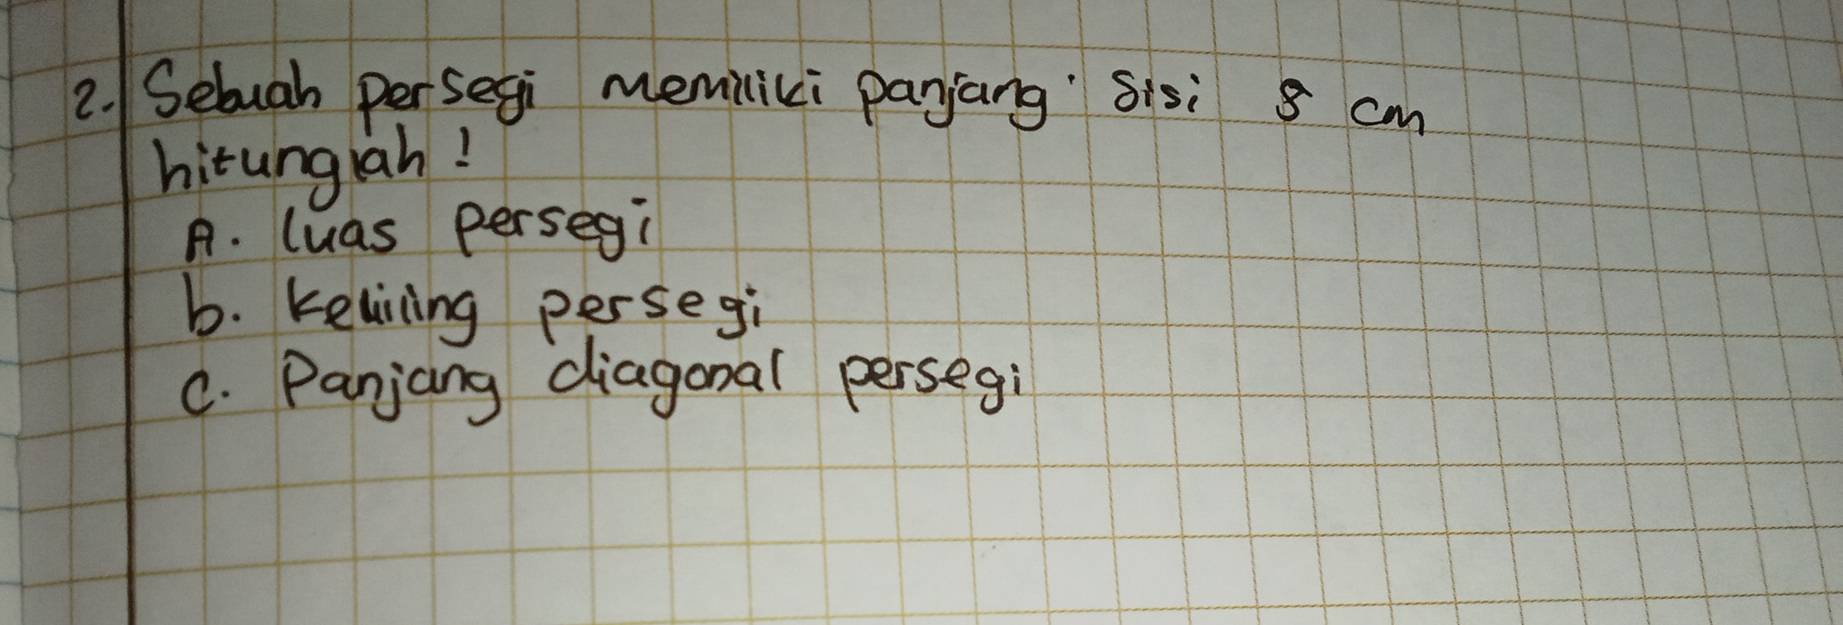 2. Sebuah persegi memiliki panjang sisi 8 cm
hitunglah!
A. luas persegi
b. keliling persegi
c. Panjang diagonal persegi